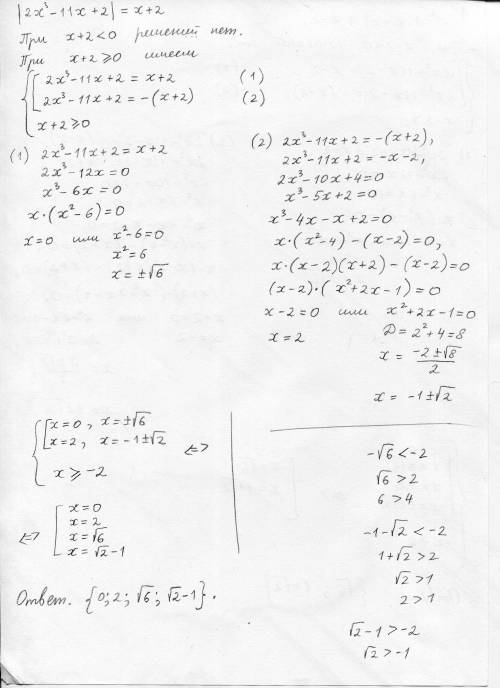 |2x³-11x+2| = x+2
При x+2<0 решений нет.
При x+2≥0 имеем
2x³-11x+2 = x+2 (1)
2x³-11x+2 = -(x+2) (2)
x+2≥0
(1) 2x³-11x+2 = x+2
2x³-12x=0
x³-6x=0
x·(x²-6)=0
x=0 или x²-6=0
x²=6
x=±√6
(2) 2x³-11x+2=-(x+2),
2x³-11x+2=-x-2,
2x³-10x+4=0
x³-5x+2=0
x³-4x-x+2=0
x·(x²-4)-(x-2)=0,
x·(x-2)(x+2)-(x-2)=0
(x-2)·(x²+2x-1)=0
x-2=0 или x²+2x-1=0
x=2 Д=2²+4=8
x = (-2±√8)/2
x = -1±√2
x=0, x=±√6
x=2, x=-1±√2 <=>
x≥-2
<=> x=0
x=2
x=√6
x=√2-1
Ответ. {0; 2; √6; √2-1}.
-√6<-2
√6>2
6>4
-1-√2<-2
1+√2>2
√2>1
2>1
√2-1>-2
√2>-1